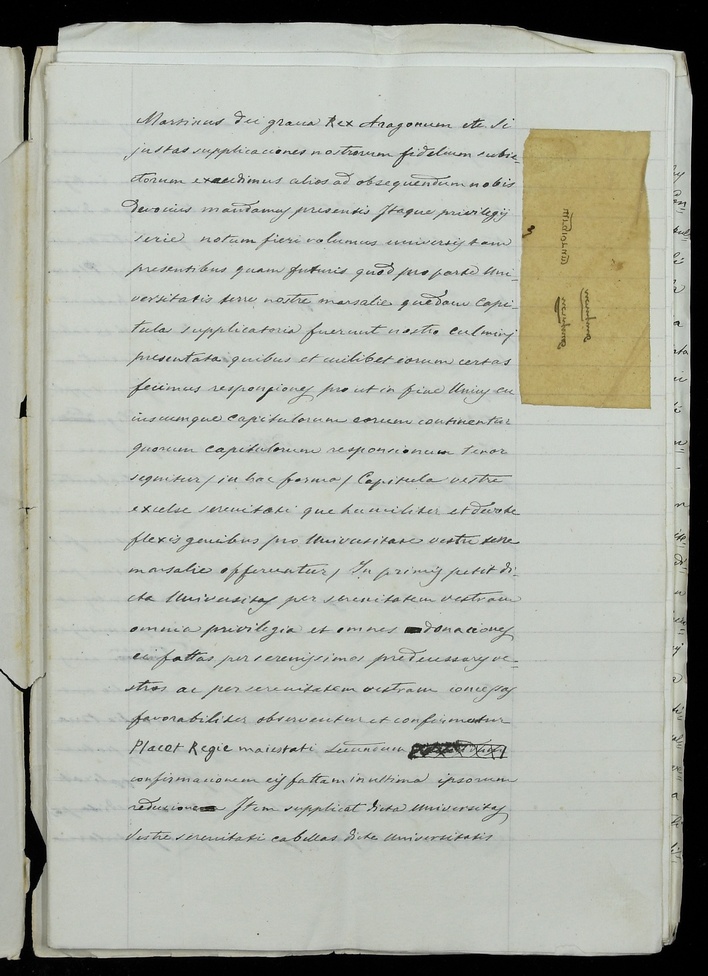 Martinus dei gracia Rex Aragonum etc Si
justas supplicaciones nostrorum fidelium subie-
ctorum exaudimus alios ad obsequendum nobis
devocius mandamus presentis Itaque privilegij
serie notum fieri volumus universis tam
presentibus quam futuris quod pro parte Uni-
versitatis terre nostre marsalie quedam Capi-
tula supplicatoria fuerunt nostro culmini
presentata quibus et cuilibet eorum certas
fecimus responsiones pro ut in fine Unius cu
iuscumque Capitulorum eorum continentur
quorum Capitulorum responsionum tenor
sequitur / in hac forma / Capitula vestre
excelse serenitati que humiliter et devote
flexis genibus pro Universitate vestre terre
marsalie offeruntur / In primis petit di-
cta Universitas per serenitatem vestram
omnia privilegia et omnes donaciones
ei fattas per serenissimos predecessores ve-
stros ac per serenitatem vestram concessas
favorabiliter observentur et confirmentur
Placet Regie maiestati secundum
confirmacionem eis fattam in ultima ipsorum
reducione Item supplicat dicta Universitas
Vestre serenitati cabellas dicte Universitatis